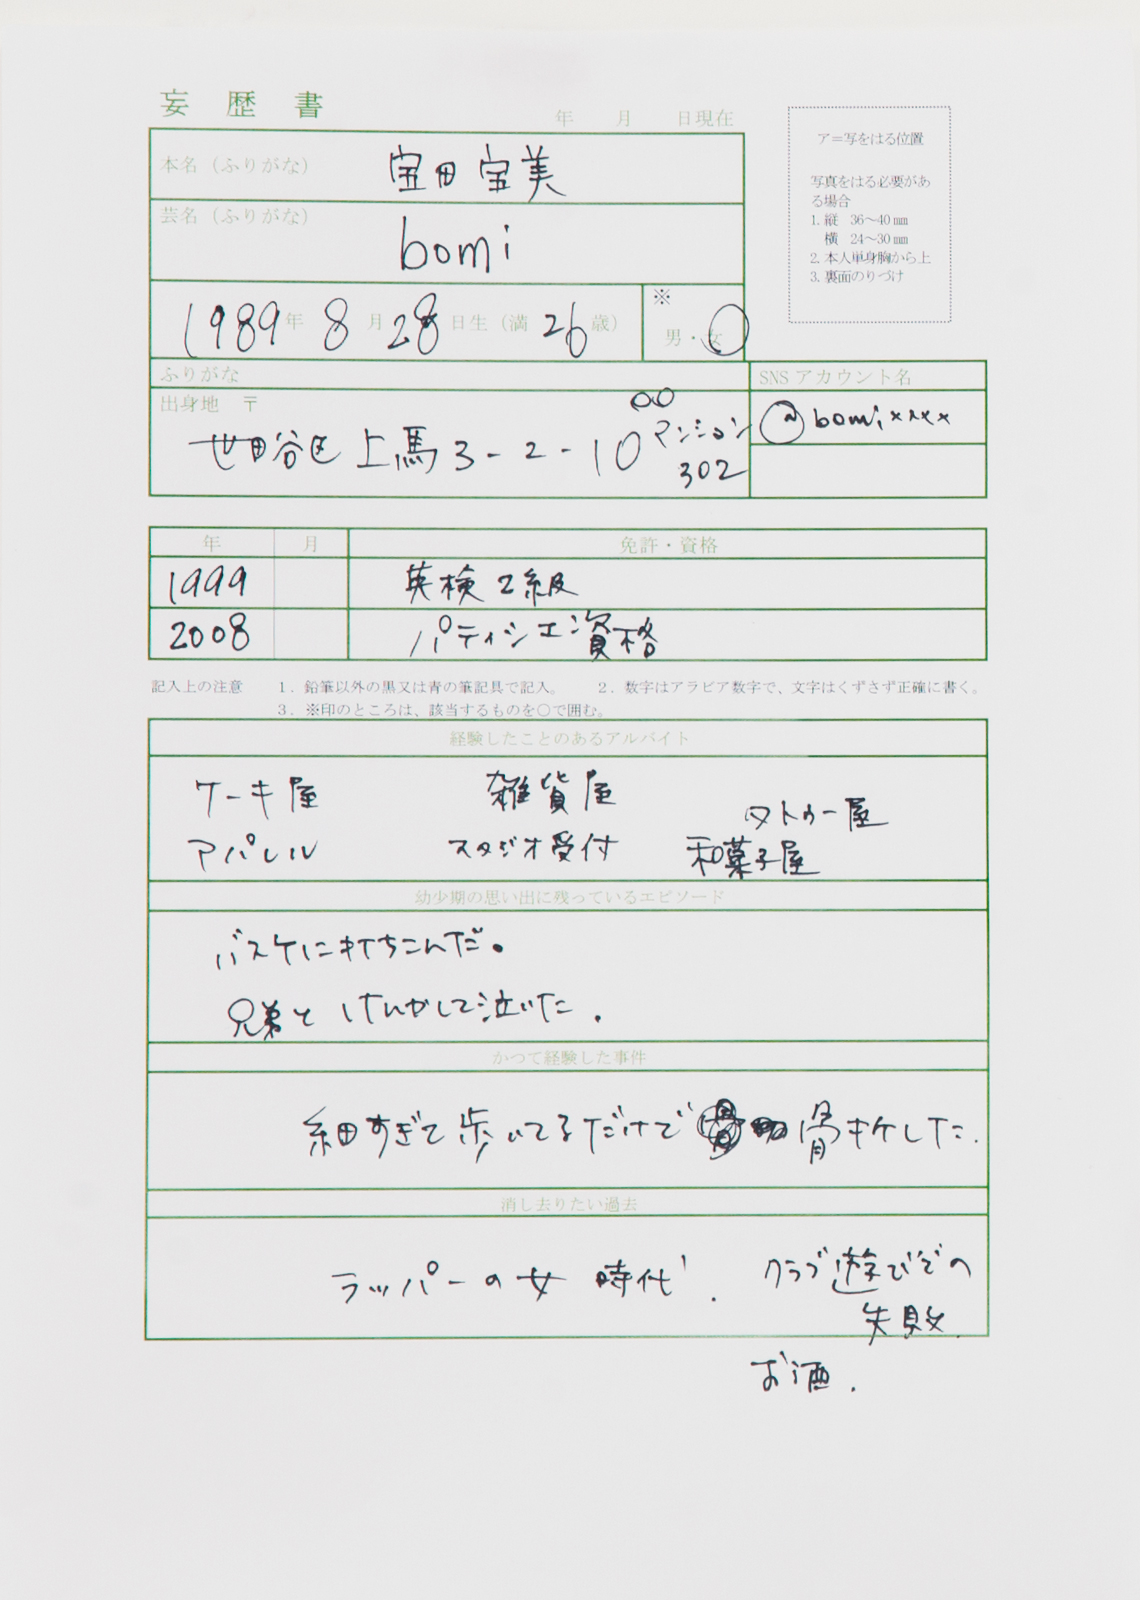 妄歴書
年 月 日現在
本名（ふりがな） 宝田宝美
芸名（ふりがな） bomi
1989年 8月28日生（満 26歳）
※
男・女
ア＝写をはる位置
写真をはる必要があ
る場合
1. 縦 36～40㎜
横 24～30㎜
2. 本人単身胸から上
3. 裏面のりづけ
ふりがな
出身地 〒
世田谷区上馬3-2-10 〇〇マンション
302
SNS アカウント名
@bomixxxx
年 月 免許・資格
1999 英検2級
2008 パティシエ資格
記入上の注意 1．鉛筆以外の黒又は青の筆記具で記入。 2．数字はアラビア数字で、文字はくずさず正確に書く。
3．※印のところは、該当するものを○で囲む。
経験したことのあるアルバイト
ケーキ屋 雑貨屋 タトゥー屋
アパレル スタジオ受付 和菓子屋
幼少期の思い出に残っているエピソード
バスケに打ちこんだ。
兄弟とけんかして泣いた.
かつて経験した事件
細すぎて歩いてるだけで骨折した.
消し去りたい過去
ラッパーの女時代. クラブ遊びでの
失敗.
お酒.